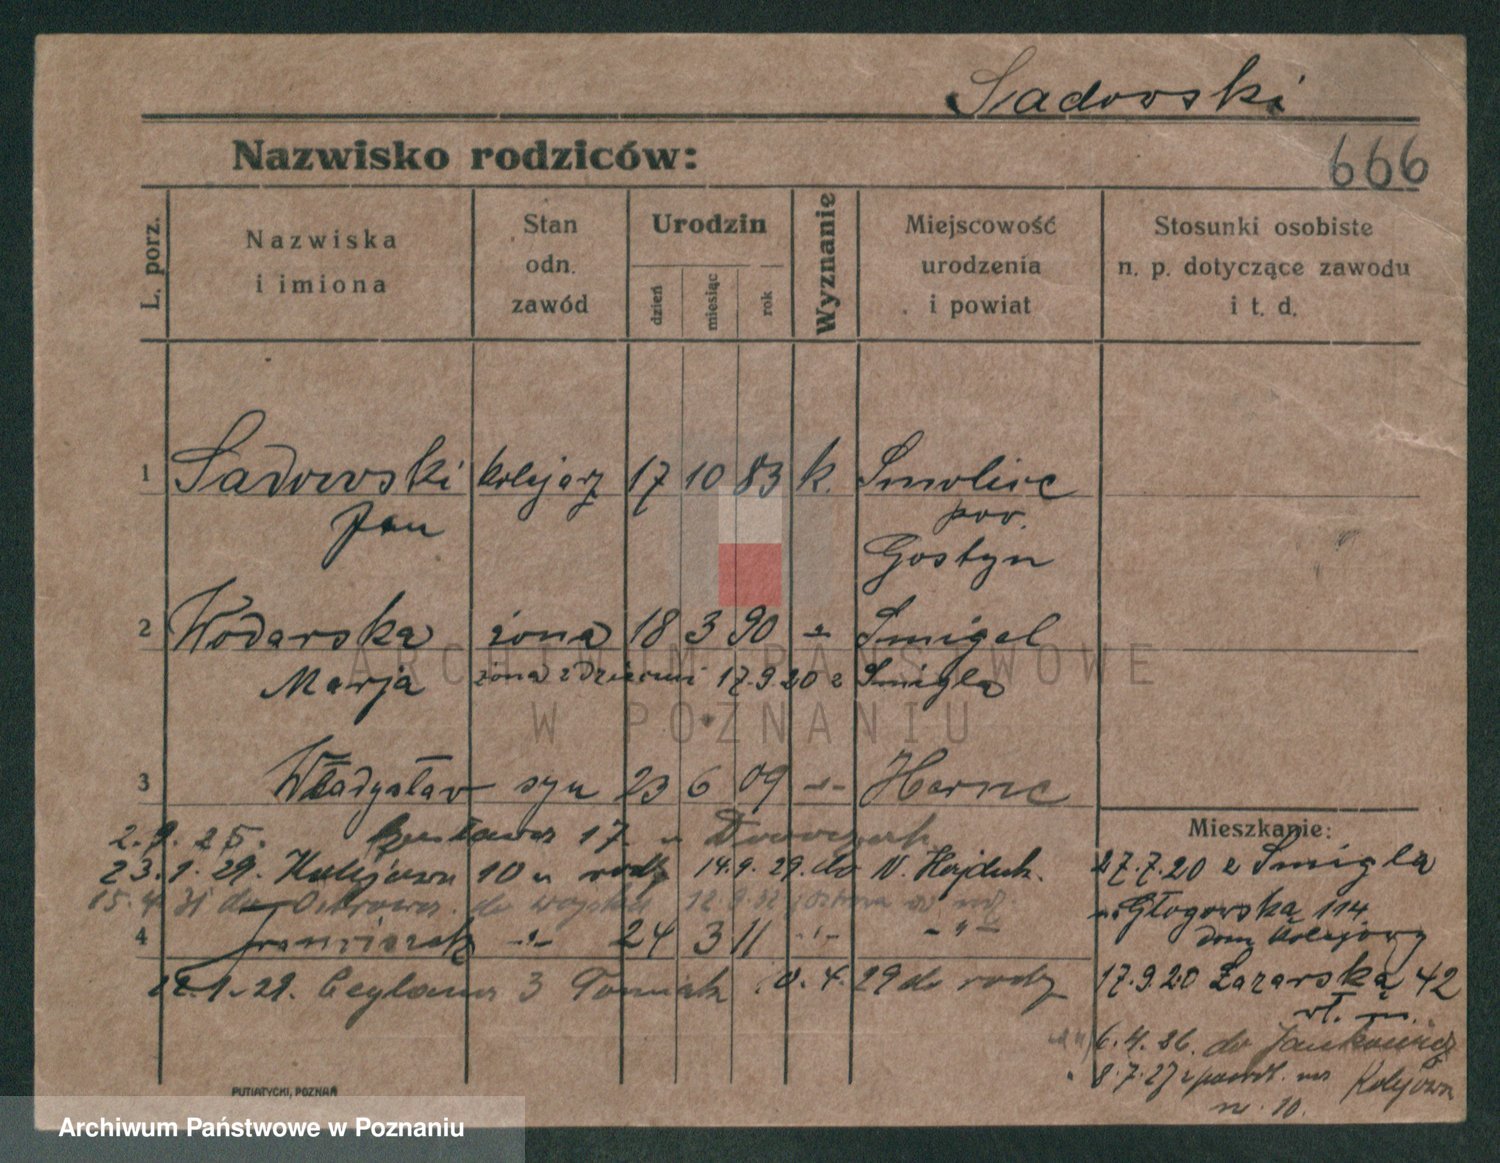 Sadowski
Nazwisko rodziców:
666
L. porz.
Nazwiska
i imiona
Stan
odn.
zawód
Urodzin
dzień
miesiąc
rok
Wyznanie
Miejscowość
urodzenia
i powiat
Stosunki osobiste
n. p. dotyczące zawodu
i t. d.
1 Sadowski kolejarz 17 10 83 k. Smolice
Jan pow.
Gostyn
2 Wodarska żona 18 3 90 -"- Smigel
Marja żona z dziećmi 17.9.20 z Smigla
3 Władysław syn 23 6 09 -"- Herne
2.9.25. 17
23.1.29. Kolejowa 10 u rodz 14.9.29. do N. Hajduk.
15.4.31 do Ostrowa. do wojska
4 Franciszek -"- 24 3 11 -"- -"-
1.29. Ceglana 3 4.29 do rodz
Mieszkanie:
27.7.20 z Smigla
Głogowska 114
dom kolejowy
17.9.20 Łazarska 42
wł. m.
6.4.26. do Jankowicz
8.7.27 Kolejowa
nr. 10.
PUTIATYCKI, POZNAŃ
ARCHIWUM PAŃSTWOWE
W POZNANIU
Archiwum Państwowe w Poznaniu